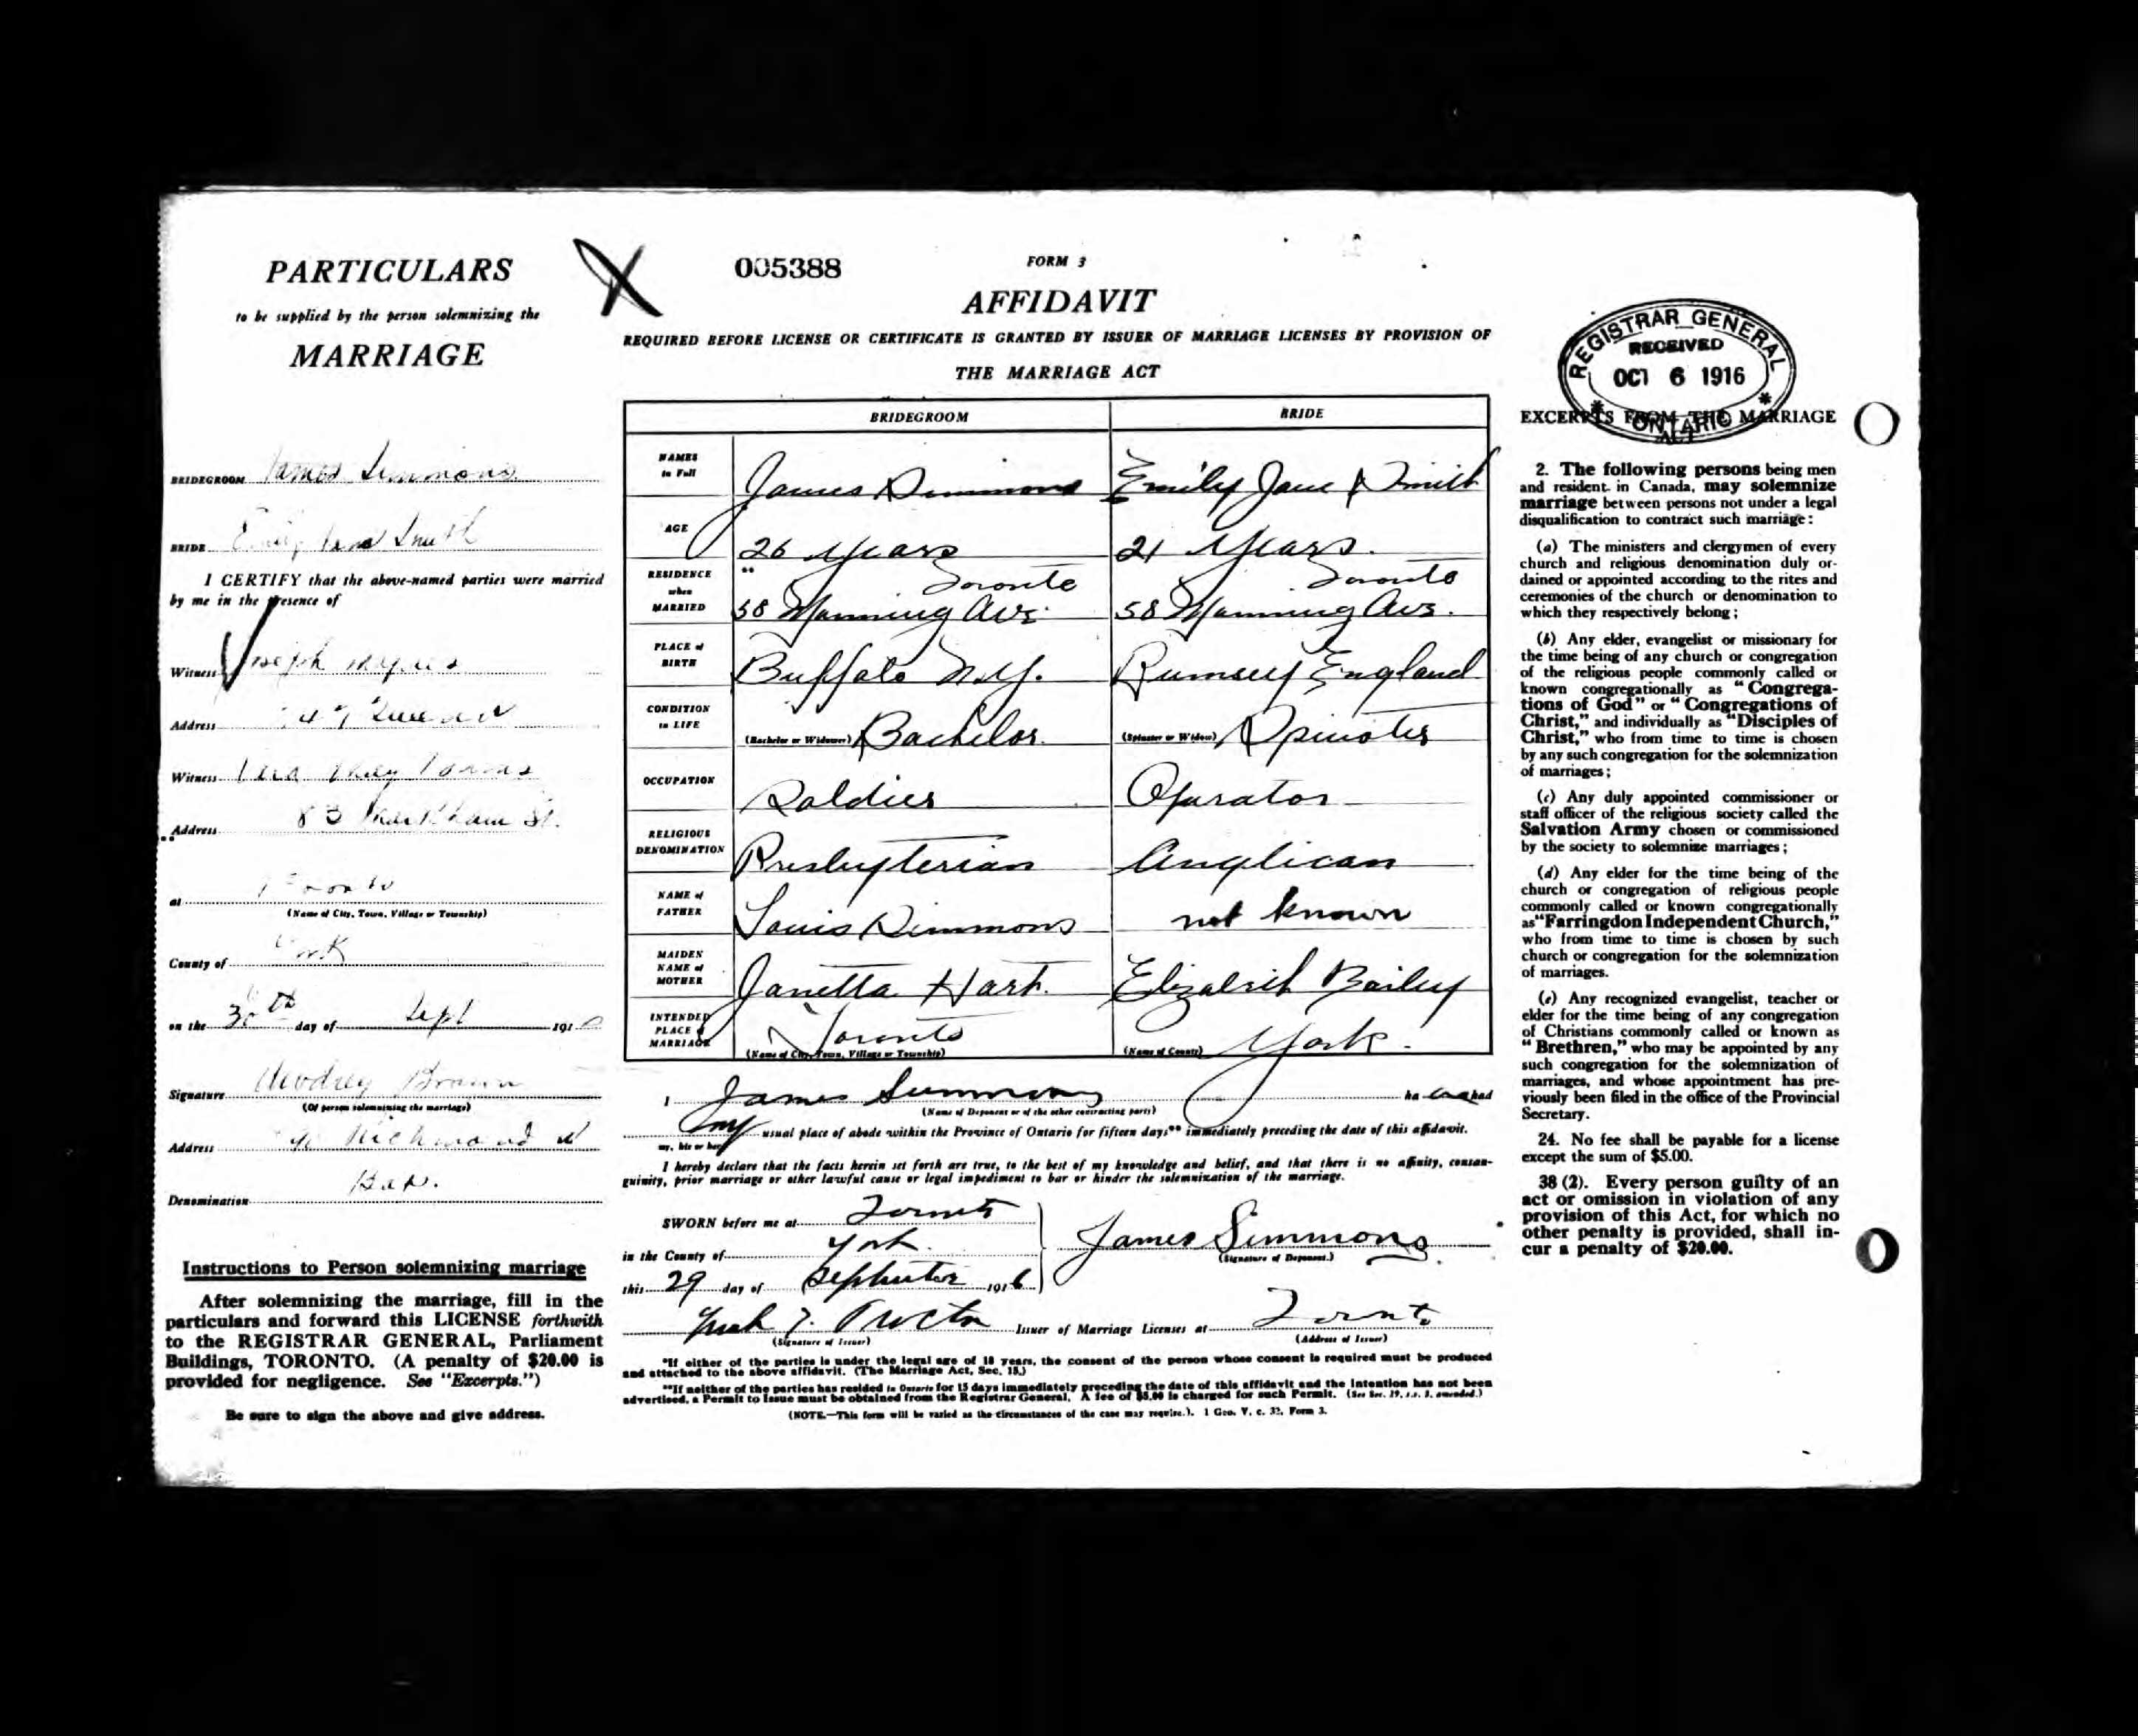 PARTICULARS
to be supplied by the person solemnizing the
MARRIAGE
BRIDEGROOM James Simmons
BRIDE Emily Jane Smith
I CERTIFY that the above-named parties were married
by me in the presence of
Witness Joseph
Address
Witness
Address 83 Markham St.
at Toronto
(Name of City, Town, Village or Township)
County of York
on the 30th day of Sept 191
Signature Brown
(Of person solemnizing the marriage)
Address Richmond W
Denomination Bap.
Instructions to Person solemnizing marriage
After solemnizing the marriage, fill in the
particulars and forward this LICENSE forthwith
to the REGISTRAR GENERAL, Parliament
Buildings, TORONTO. (A penalty of $20.00 is
provided for negligence. See "Excerpts.")
Be sure to sign the above and give address.
005388
FORM 3
AFFIDAVIT
REQUIRED BEFORE LICENSE OR CERTIFICATE IS GRANTED BY ISSUER OF MARRIAGE LICENSES BY PROVISION OF
THE MARRIAGE ACT
BRIDEGROOM BRIDE
NAMES in Full James Simmons Emily Jane Smith
AGE 26 Years 21 Years.
RESIDENCE when MARRIED ** 58 Manning Ave. Toronto 58 Manning Ave. Toronto
PLACE of BIRTH Buffalo N.Y. Rumsey England
CONDITION in LIFE (Bachelor or Widower) Bachelor. (Spinster or Widow) Spinster
OCCUPATION Soldier Operator
RELIGIOUS DENOMINATION Presbyterian Anglican
NAME of FATHER Louis Simmons not known
MAIDEN NAME of MOTHER Janetta Hart. Elizabeth Bailey
INTENDED PLACE of MARRIAGE Toronto York.
(Name of City, Town, Village or Township) (Name of County)
I James Simmons ha had
(Name of Deponent or of the other contracting party)
my usual place of abode within the Province of Ontario for fifteen days** immediately preceding the date of this affidavit.
my, his or her
I hereby declare that the facts herein set forth are true, to the best of my knowledge and belief, and that there is no affinity, consan-
guinity, prior marriage or other lawful cause or legal impediment to bar or hinder the solemnization of the marriage.
SWORN before me at Toronto
in the County of York. James Simmons
(Signature of Deponent.)
this 29 day of September 1916
T. Procter Issuer of Marriage Licenses at Toronto
(Signature of Issuer) (Address of Issuer)
*If either of the parties is under the legal age of 18 years, the consent of the person whose consent is required must be produced
and attached to the above affidavit. (The Marriage Act, Sec. 15.)
**If neither of the parties has resided in Ontario for 15 days immediately preceding the date of this affidavit and the intention has not been
advertised, a Permit to Issue must be obtained from the Registrar General. A fee of $5.00 is charged for such Permit. (See Sec. 19, s.s. 5, amended.)
(NOTE.—This form will be varied as the circumstances of the case may require.). 1 Geo. V. c. 32. Form 3.
REGISTRAR GENERAL
RECEIVED
OCT 6 1916
ONTARIO
EXCERPTS FROM THE MARRIAGE
ACT
2. The following persons being men
and resident in Canada, may solemnize
marriage between persons not under a legal
disqualification to contract such marriage:
(a) The ministers and clergymen of every
church and religious denomination duly or-
dained or appointed according to the rites and
ceremonies of the church or denomination to
which they respectively belong;
(b) Any elder, evangelist or missionary for
the time being of any church or congregation
of the religious people commonly called or
known congregationally as "Congrega-
tions of God" or "Congregations of
Christ," and individually as "Disciples of
Christ," who from time to time is chosen
by any such congregation for the solemnization
of marriages;
(c) Any duly appointed commissioner or
staff officer of the religious society called the
Salvation Army chosen or commissioned
by the society to solemnize marriages;
(d) Any elder for the time being of the
church or congregation of religious people
commonly called or known congregationally
as "Farringdon Independent Church,"
who from time to time is chosen by such
church or congregation for the solemnization
of marriages.
(e) Any recognized evangelist, teacher or
elder for the time being of any congregation
of Christians commonly called or known as
"Brethren," who may be appointed by any
such congregation for the solemnization of
marriages, and whose appointment has pre-
viously been filed in the office of the Provincial
Secretary.
24. No fee shall be payable for a license
except the sum of $5.00.
38 (2). Every person guilty of an
act or omission in violation of any
provision of this Act, for which no
other penalty is provided, shall in-
cur a penalty of $20.00.